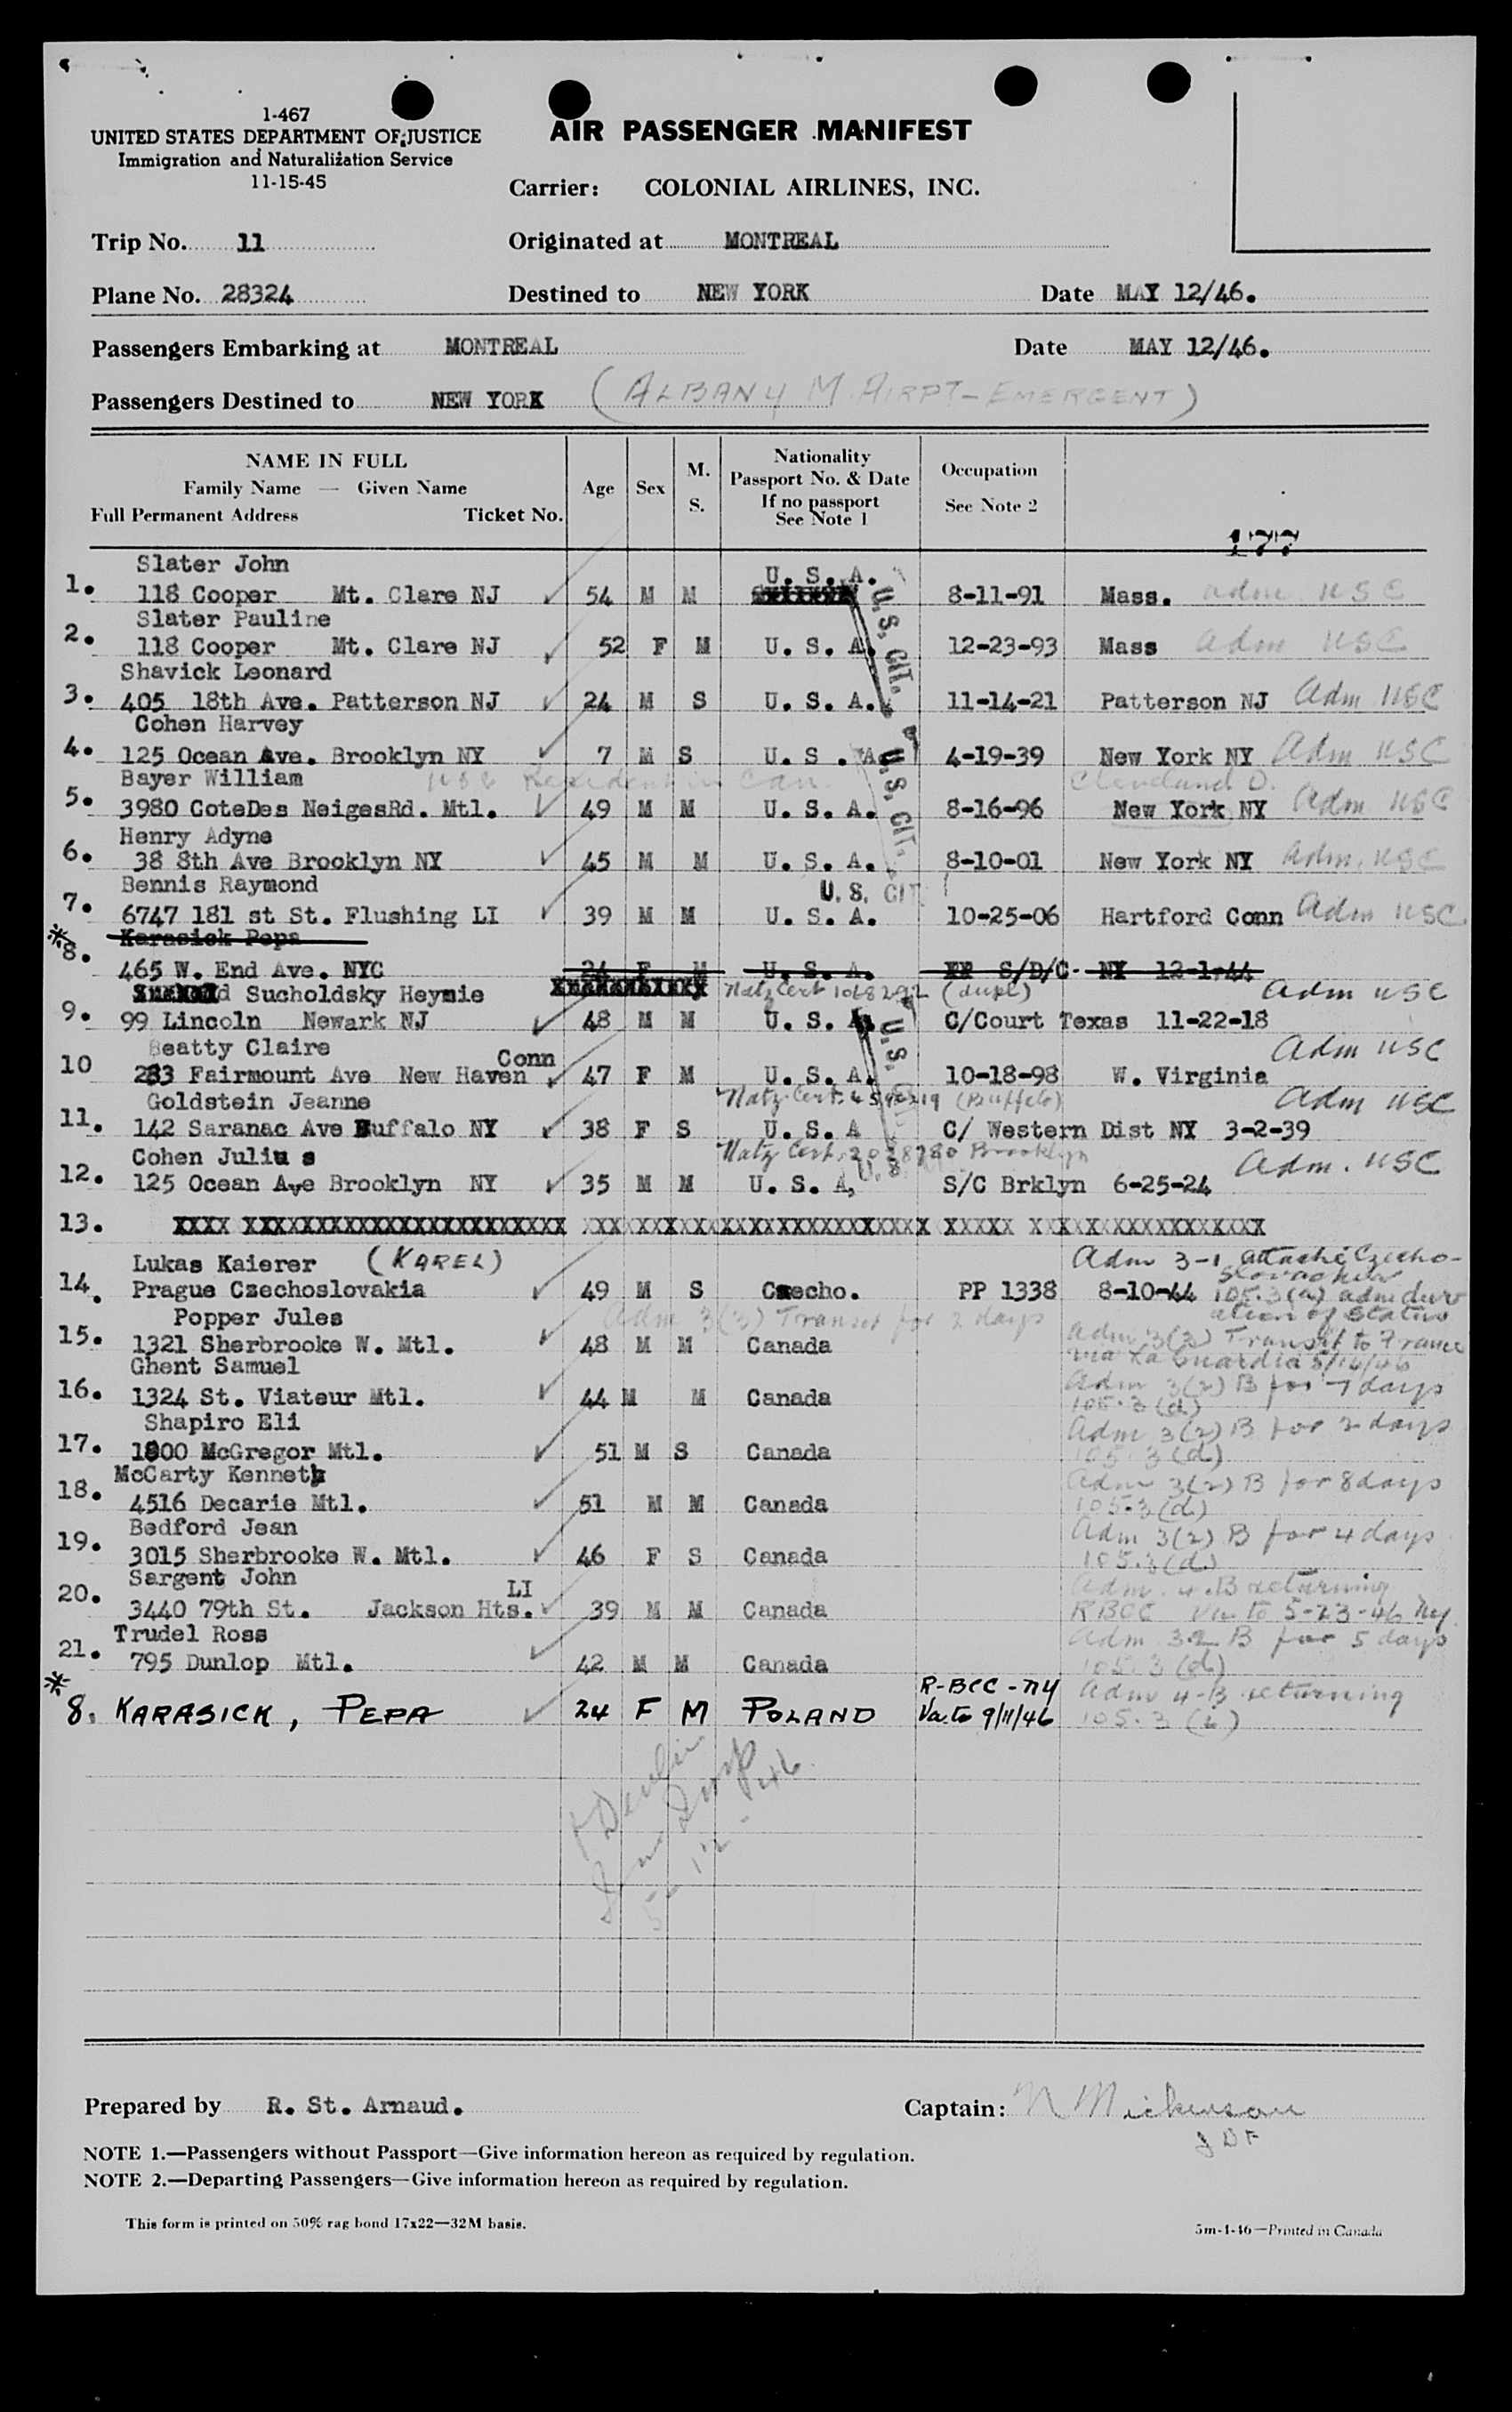 1-467
UNITED STATES DEPARTMENT OF JUSTICE
Immigration and Naturalization Service
11-15-45
AIR PASSENGER MANIFEST
Carrier: COLONIAL AIRLINES, INC.
Trip No. 11 Originated at MONTREAL
Plane No. 28324 Destined to NEW YORK Date MAY 12/46.
Passengers Embarking at MONTREAL Date MAY 12/46.
Passengers Destined to NEW YORK (ALBANY M. AIRPT-EMERGENT)
NAME IN FULL
Family Name — Given Name
Full Permanent Address Ticket No.
Age Sex M. S.
Nationality
Passport No. & Date
If no passport
See Note 1
Occupation
See Note 2
177
Slater John
1. 118 Cooper Mt. Clare NJ 54 M M U. S. A. 8-11-91 Mass. adm USC
Slater Pauline
2. 118 Cooper Mt. Clare NJ 52 F M U. S. A. 12-23-93 Mass adm USC
Shavick Leonard
3. 405 18th Ave. Patterson NJ 24 M S U. S. A. 11-14-21 Patterson NJ Adm USC
Cohen Harvey
4. 125 Ocean Ave. Brooklyn NY 7 M S U. S . A 4-19-39 New York NY Adm USC
Bayer William USC Resident in Can. Cleveland O.
5. 3980 CoteDes NeigesRd. Mtl. 49 M M U. S. A. 8-16-96 New York NY Adm USC
Henry Adyne
6. 38 8th Ave Brooklyn NY 45 M M U. S. A. 8-10-01 New York NY Adm. USC
Bennis Raymond U.S. CIT.
7. 6747 181 st St. Flushing LI 39 M M U. S. A. 10-25-06 Hartford Conn Adm USC
Karasick Pepa
*8. 465 W. End Ave. NYC 24 F M U. S. A. PP S/D/C NY 12-1-44
Sucholdsky Heymie Natz Cert 1068292 (dupl) Adm USC
9. 99 Lincoln Newark NJ 48 M M U. S. A. C/Court Texas 11-22-18
Beatty Claire Conn Adm USC
10 283 Fairmount Ave New Haven 47 F M U. S. A. 10-18-98 W. Virginia
Goldstein Jeanne Natz Cert. (Buffalo) Adm USC
11. 142 Saranac Ave Buffalo NY 38 F S U. S. A C/ Western Dist NY 3-2-39
Cohen Julius Natz Cert. Brooklyn Adm. USC
12. 125 Ocean Ave Brooklyn NY 35 M M U. S. A, S/C Brklyn 6-25-24
U.S. CIT.
U.S. CIT.
U.S.
13. XXXX XXXXXXXXXXXXXXXXXXXXXX
Lukas Kaierer (KAREL) Adm 3-1 attaché Czecho-
slovakia
14. Prague Czechoslovakia 49 M S Czecho. PP 1338 8-10-44 105.3(a) adm dur
ation of Status
Popper Jules Adm 3(3) Transit for 2 days
15. 1321 Sherbrooke W. Mtl. 48 M M Canada Adm 3(3) Transit to France
via La Guardia 5/14/46
Ghent Samuel
16. 1324 St. Viateur Mtl. 44 M M Canada Adm 3(2) B for 7 days
105.3(d)
Shapiro Eli
17. 1800 McGregor Mtl. 51 M S Canada Adm 3(2) B for 2 days
105.3(d)
McCarty Kenneth
18. 4516 Decarie Mtl. 51 M M Canada Adm 3(2) B for 8 days
105.3(d)
Bedford Jean
19. 3015 Sherbrooke W. Mtl. 46 F S Canada Adm 3(2) B for 4 days
105.3(d)
Sargent John LI
20. 3440 79th St. Jackson Hts. 39 M M Canada Adm. 4.B returning
RBCC Va. to 5-23-46 NY
Trudel Ross
21. 795 Dunlop Mtl. 42 M M Canada Adm 32 B for 5 days
105.3(d)
*8. KARASICK, PEPA 24 F M POLAND R-BCC-NY Va. to 9/11/46 Adm 4-B returning
105.3(b)
Devlin
Imm Insp
5-12-46
Prepared by R. St. Arnaud. Captain:
NOTE 1.—Passengers without Passport—Give information hereon as required by regulation.
NOTE 2.—Departing Passengers—Give information hereon as required by regulation.
This form is printed on 50% rag bond 17x22—32M basis.
5m-4-46—Printed in Canada